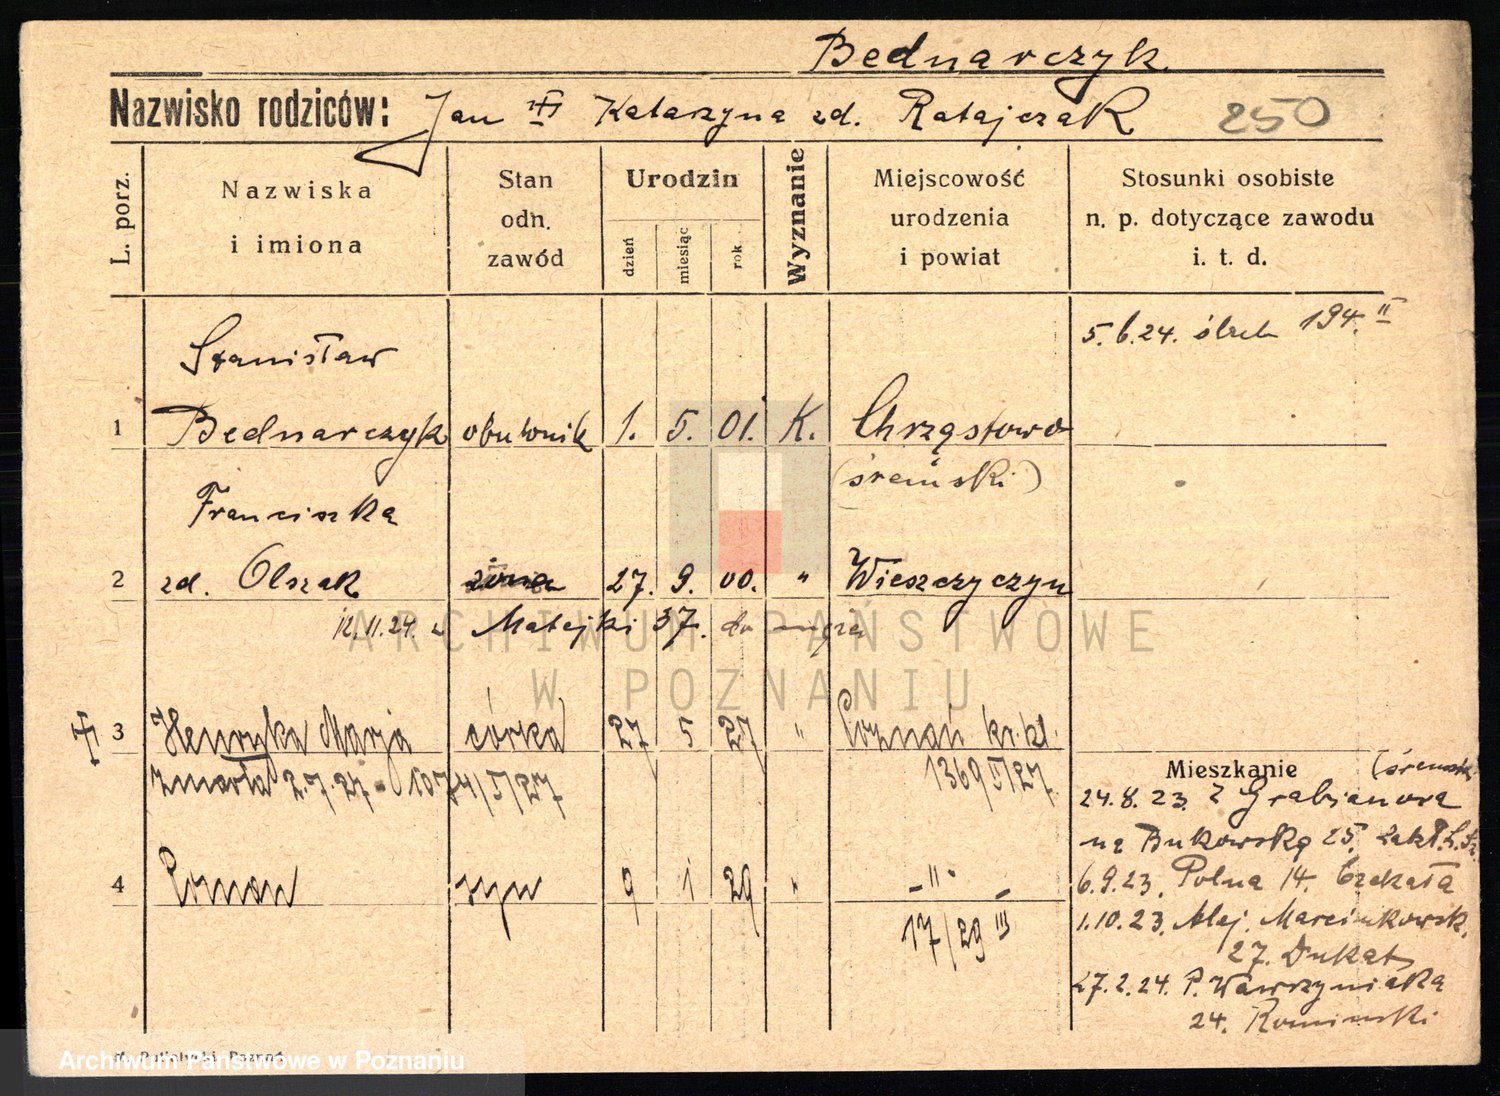 Bednarczyk.
Nazwisko rodziców: Jan Katarzyna zd. Ratajczak 250
L. porz.
Nazwiska
i imiona
Stan
odn.
zawód
Urodzin
dzień
miesiąc
rok
Wyznanie
Miejscowość
urodzenia
i powiat
Stosunki osobiste
n. p. dotyczące zawodu
i. t. d.
5.6.24. 194. II
Stanisław
1 Bednarczyk obuwnik 1. 5. 01. K. Chrząstowo
(śremski)
Franciszka
2 zd. Olszak żona 27. 9. 00. " Wieszczyczyn
12.11.24. Matejki 37. do męża
ARCHIWUM PAŃSTWOWE
W POZNANIU
3 Henryka Marja córka 27 5 27 " Poznań kr. kl.
zmarła 2.7.27 1369/I/27
Mieszkanie (śremski
24.8.23. z Grabianowa
na Bukowską 25.
4 Roman syn 9 1 29 " - " -
6.9.23. Polna 14. Czekała
17/29 III
1.10.23. Alej. Marcinkowsk.
27. Dukat
27.2.24. P. Wawrzyniaka
24. Rominski
Archiwum Państwowe w Poznaniu